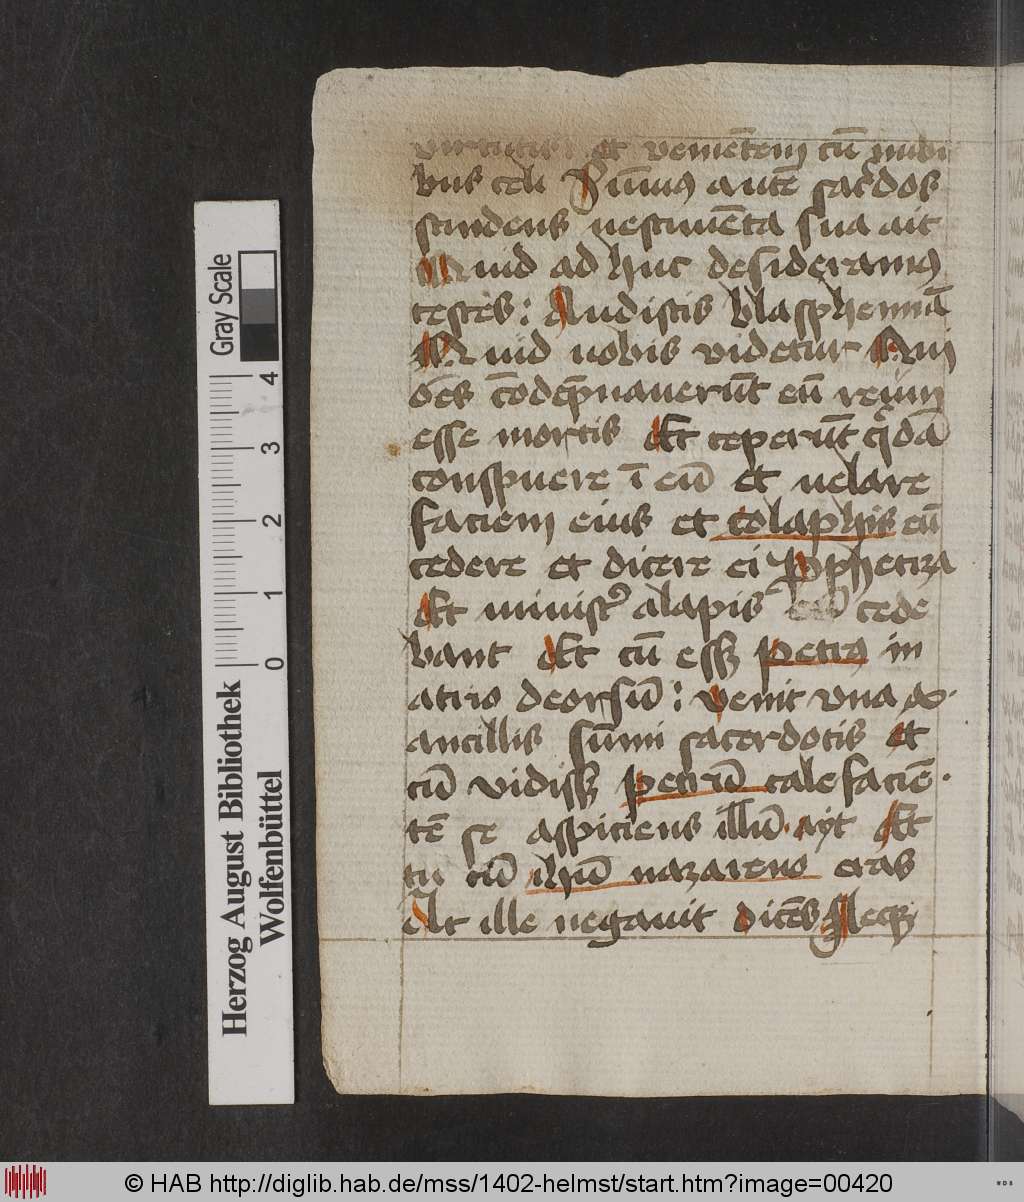 virtutis: et venietē cū nubi
bus celi Sūmus autē sacerdos
scindens vestimēta sua ait
Quid ad huc desideramus
testes: Audistis blasphemiā
Quid vobis videtur Qui
oēs cōdēpnaverūt eū reum
esse mortis Et ceperūt qdā
conspuere ī eū et velare
faciem eius et colaphis eū
cedere et dicere ei Pphetiza
Et ministʳ alapis eū cede
bant Et cū essʒ Petrꝰ in
atrio deorsū: venit vna ex
ancillis sūmi sacerdotis et
cū vidissʒ petrū calefaciē
tē se aspiciens illū ayt Et
tu cū ihū nazareno eras
At ille negavit dicēs Neqʒ
Gray Scale
4
3
2
1
0
Herzog August Bibliothek
Wolfenbüttel
© HAB http://diglib.hab.de/mss/1402-helmst/start.htm?image=00420